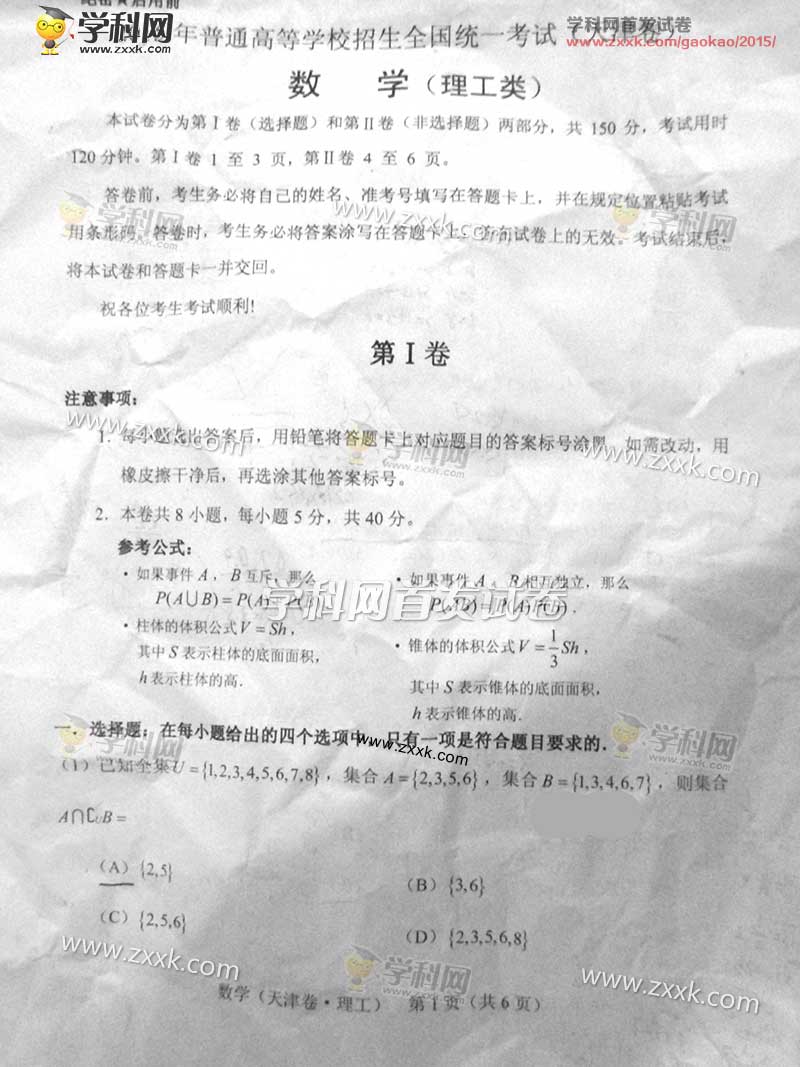 绝密★启用前
学科网首发试卷
www.zxxk.com/gaokao/2015/
年普通高等学校招生全国统一考试（天津卷）
数 学（理工类）
本试卷分为第Ⅰ卷（选择题）和第Ⅱ卷（非选择题）两部分，共 150 分，考试用时
120 分钟。第Ⅰ卷 1 至 3 页，第Ⅱ卷 4 至 6 页。
答卷前，考生务必将自己的姓名、准考号填写在答题卡上，并在规定位置粘贴考试
用条形码。答卷时，考生务必将答案涂写在答题卡上，答在试卷上的无效。考试结束后，
将本试卷和答题卡一并交回。
祝各位考生考试顺利!
第Ⅰ卷
注意事项：
1. 每小题选出答案后，用铅笔将答题卡上对应题目的答案标号涂黑。如需改动，用
橡皮擦干净后，再选涂其他答案标号。
2. 本卷共 8 小题，每小题 5 分，共 40 分。
参考公式：
·如果事件 A，B 互斥，那么
P(A∪B)=P(A)+P(B).
·如果事件 A、B 相互独立，那么
P(AB)=P(A)P(B).
·柱体的体积公式 V=Sh，
其中 S 表示柱体的底面面积，
h 表示柱体的高.
·锥体的体积公式 V=1/3Sh，
其中 S 表示锥体的底面面积，
h 表示锥体的高.
一．选择题：在每小题给出的四个选项中，只有一项是符合题目要求的．
（1）已知全集U={1,2,3,4,5,6,7,8}，集合 A={2,3,5,6}，集合 B={1,3,4,6,7}，则集合
A∩∁UB=
（A）{2,5}
（B）{3,6}
（C）{2,5,6}
（D）{2,3,5,6,8}
数学（天津卷·理工） 第 1 页（共 6 页）
学科网
www.zxxk.com
学科网首发试卷